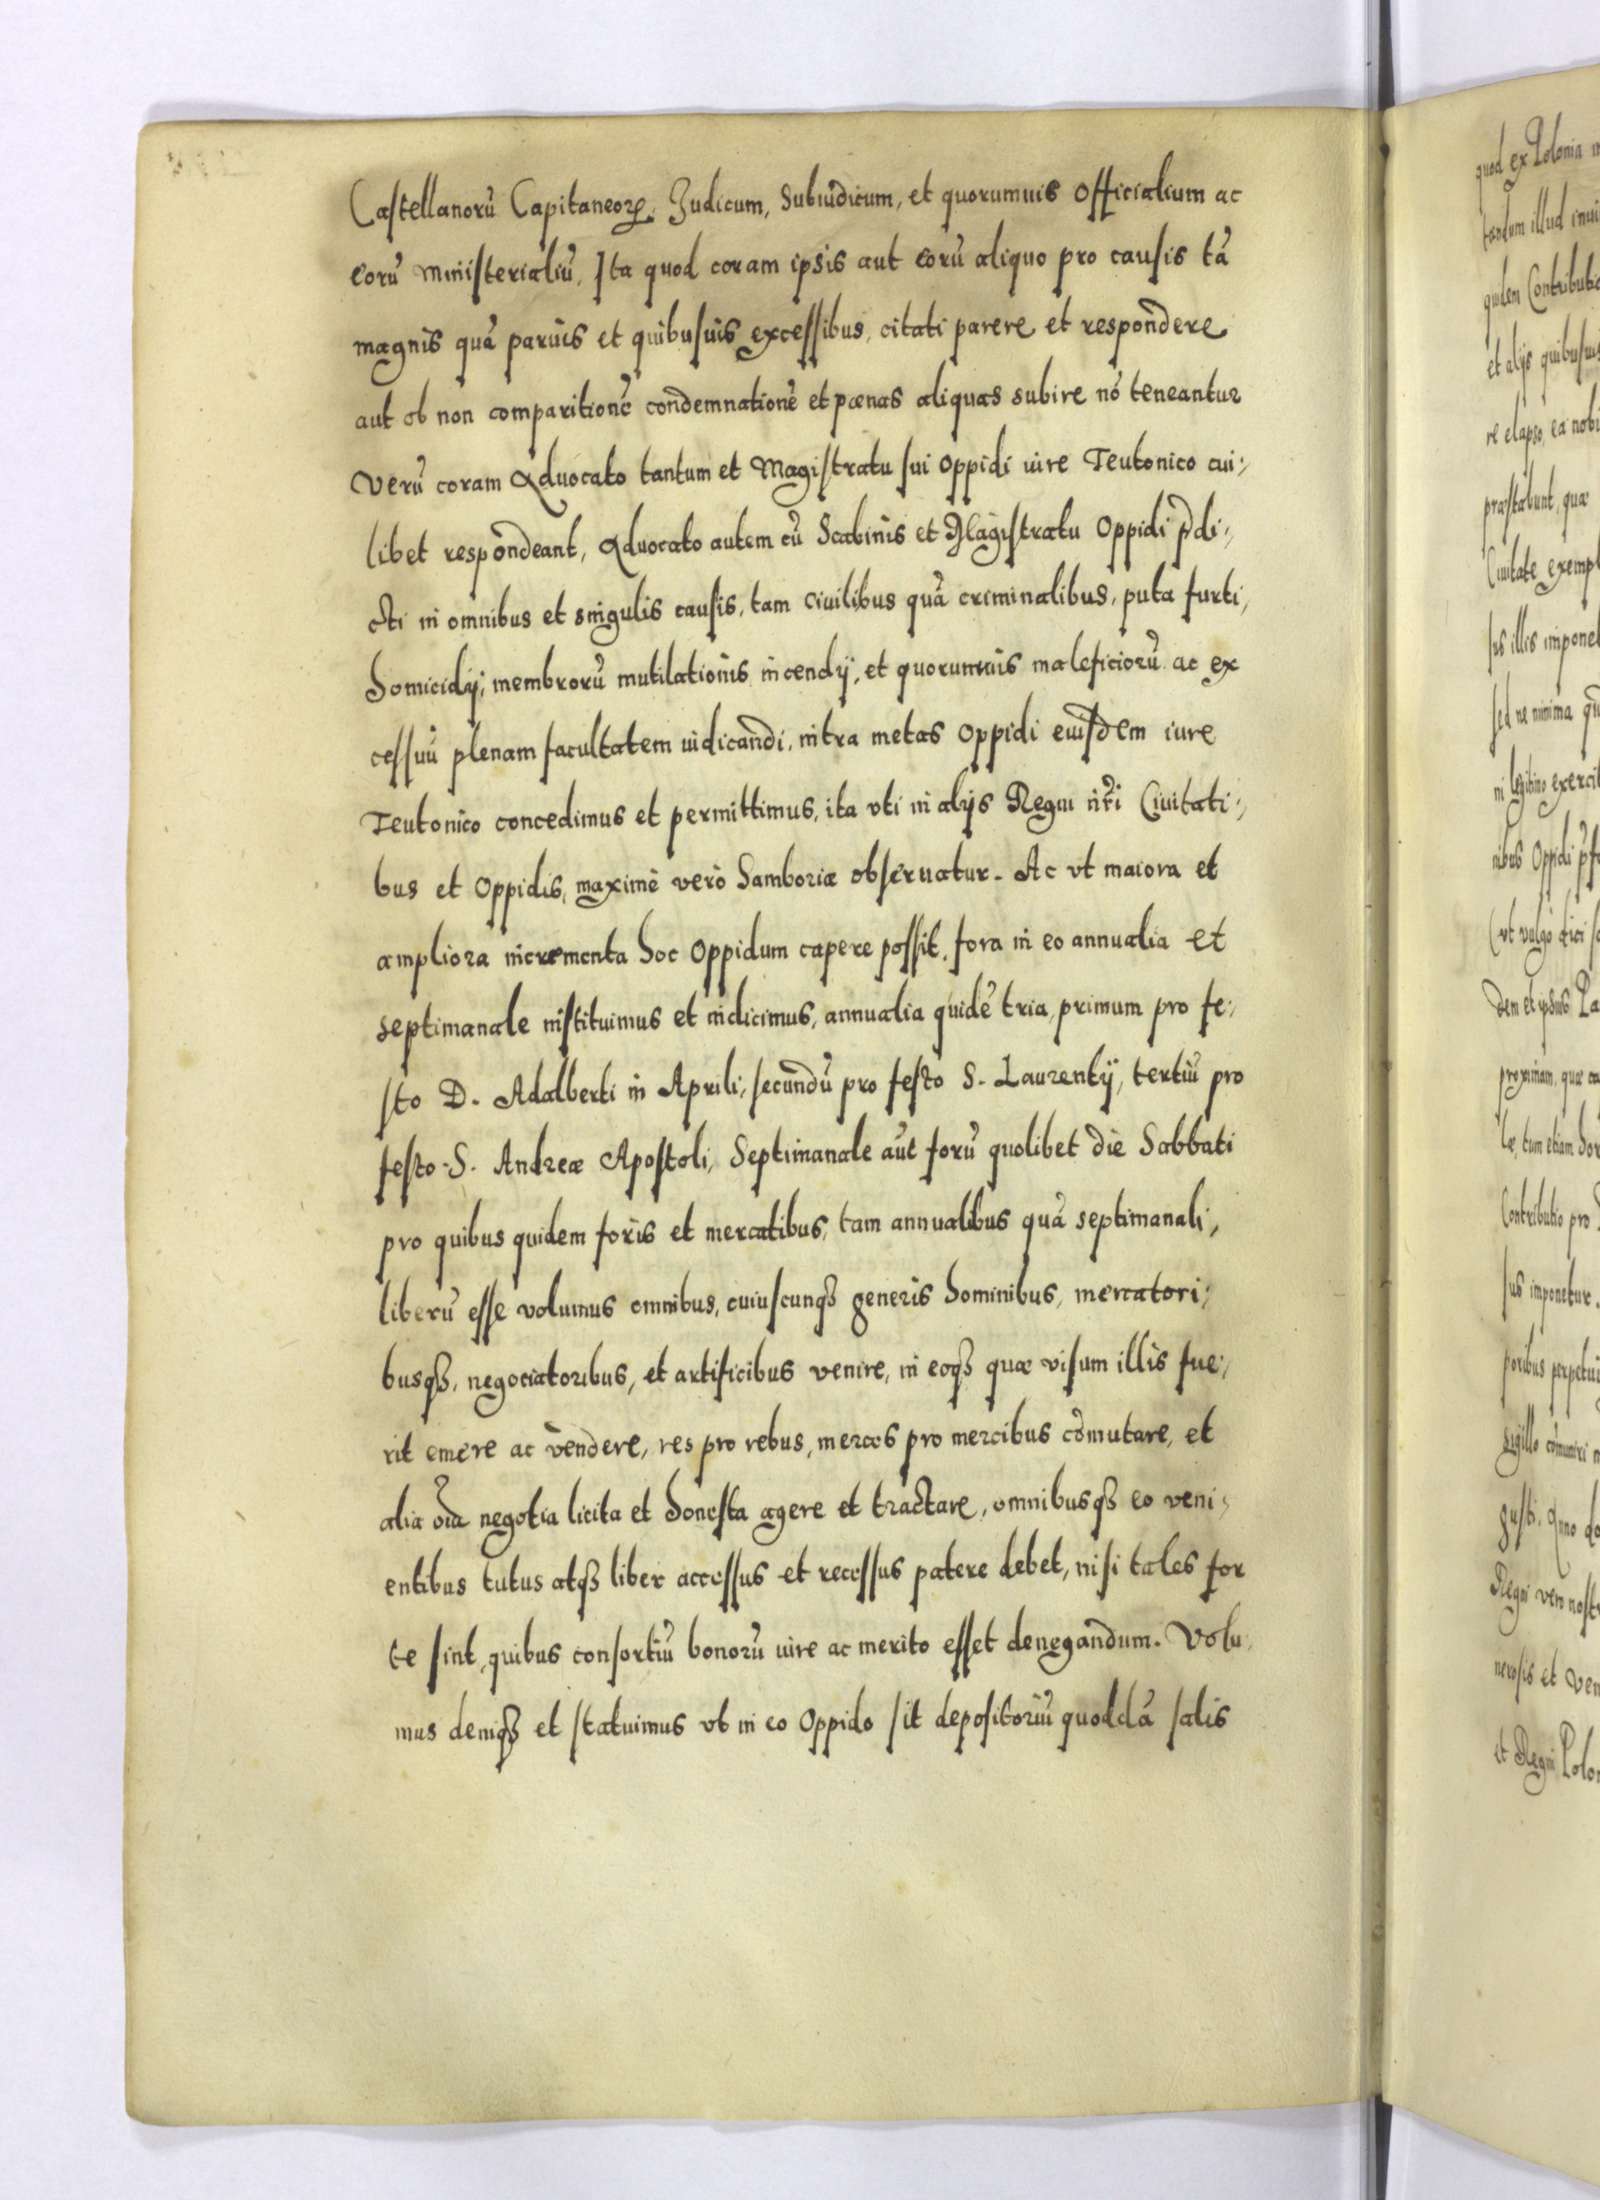 Castellanorũ Capitaneoꝝ, Judicum, Subiudicum, et quorumuis Officialium ac
eorũ ministerialiũ, Ita quod coram ipsis aut eorũ aliquo pro causis tã
magnis quã paruis et quibusuis excessibus, citati parere et respondere
aut ob non comparitionẽ condemnationẽ et pœnas aliquas subire nõ teneantur
Verũ coram Aduocato tantum et Magistratu sui Oppidi iure Teutonico cui-
libet respondeant, Aduocato autem cũ Scabinis et Magistratu Oppidi p̃di-
cti in omnibus et singulis causis, tam ciuilibus quã criminalibus, puta furti,
homicidij, membrorũ mutilationis incendij, et quorumuis maleficiorũ ac ex
cessuũ plenam facultatem iudicandi, intra metas Oppidi eiusdem iure
Teutonico concedimus et permittimus, ita vti in alijs Regni nr̃i Ciuitati-
bus et Oppidis, maximè verò Samboriæ obseruatur. Ac vt maiora et
ampliora incrementa hoc Oppidum capere possit, fora in eo annualia et
septimanale instituimus et indicimus, annualia quidẽ tria, primum pro fe-
sto D. Adalberti in Aprili, secundũ pro festo S. Laurentij, tertiũ pro
festo S. Andreæ Apostoli, Septimanale aũt forũ quolibet die Sabbati
pro quibus quidem foris et mercatibus, tam annualibus quã septimanali,
liberũ esse volumus omnibus, cuiuscunqȝ generis hominibus, mercatori-
busqȝ, negociatoribus, et artificibus venire, in eoqȝ quæ visum illis fue-
rit emere ac vendere, res pro rebus, merces pro mercibus cõmutare, et
alia oĩa negotia licita et honesta agere et tractare, omnibusqȝ eo veni-
entibus tutus atqȝ liber accessus et recessus patere debet, nisi tales for
te sint, quibus consortiũ bonorũ iure ac merito esset denegandum. Volu
mus deniqȝ et statuimus vt in eo Oppido sit depositoriũ quoddã salis
quod ex Polonia
tandem illud
quidem
et alijs quibusuis
re elapso, ea
præstabunt, quæ
Ciuitate
illis
sed ne minima
ni legitimo
nibus Oppidi
vt vulgò dici
dem et ipsius
proximam, quæ
tum etiam
Contributio pro
sus imponetur.
poribus
sigillo
gusti. Anno
Regni vero
nerosis et
et Regni